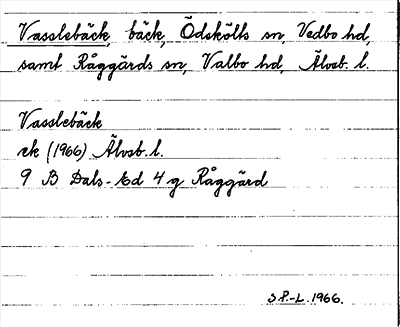 Vasslebäck, bäck, Ödskölts sn, Vedbo hd,
samt Råggärds sn, Valbo hd, Älvsb. l.
Vasslebäck
ek (1966) Älvsb. l.
9 B Dals-Ed 4 g Råggärd
S P.-L. 1966.